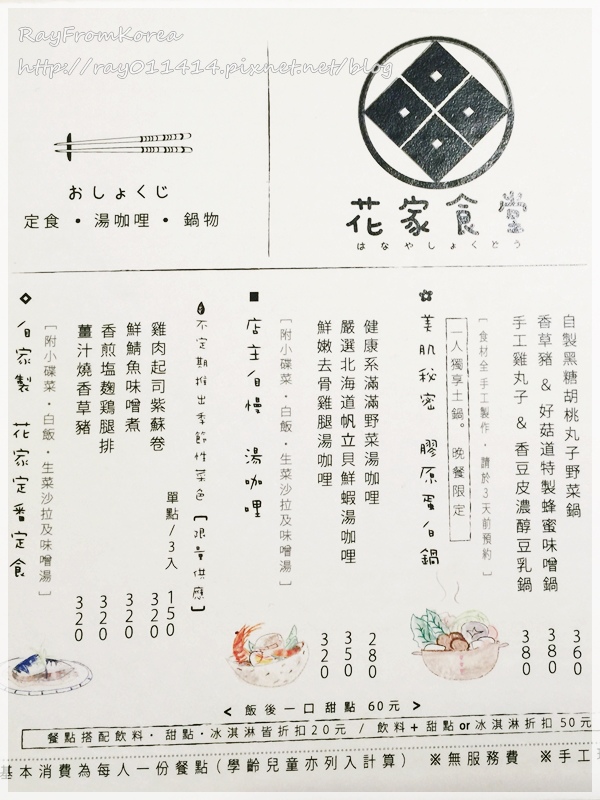 RayFromKorea
http://ray011414.pixnet.net/blog
おしょくじ
定食 • 湯咖哩 • 鍋物
花家食堂
はなやしょくどう
美肌秘密 膠原蛋白鍋
一人獨享土鍋。 晚餐限定
[食材全手工製作，請於3天前預約]
自製黑糖胡桃丸子野菜鍋 360
香草豬 & 好菇道特製蜂蜜味噌鍋 380
手工雞丸子 & 香豆皮濃醇豆乳鍋 380
■ 店主自慢 湯咖哩
[附小碟菜・白飯・生菜沙拉及味噌湯]
健康系滿滿野菜湯咖哩 280
嚴選北海道帆立貝鮮蝦湯咖哩 350
鮮嫩去骨雞腿湯咖哩 320
不定期推出季節性菜色【限量供應】
◇ 自家製 花家定番定食
[附小碟菜・白飯・生菜沙拉及味噌湯]
雞肉起司紫蘇卷 320
單點/3入 150
鮮鯖魚味噌煮 320
香煎塩麴鶏腿排 320
薑汁燒香草豬 320
< 飯後一口甜點 60元 >
餐點搭配飲料・甜點・冰淇淋皆折扣20元 / 飲料+甜點or冰淇淋折扣 50元
基本消費為每人一份餐點(學齡兒童亦列入計算) ※無服務費 ※手工